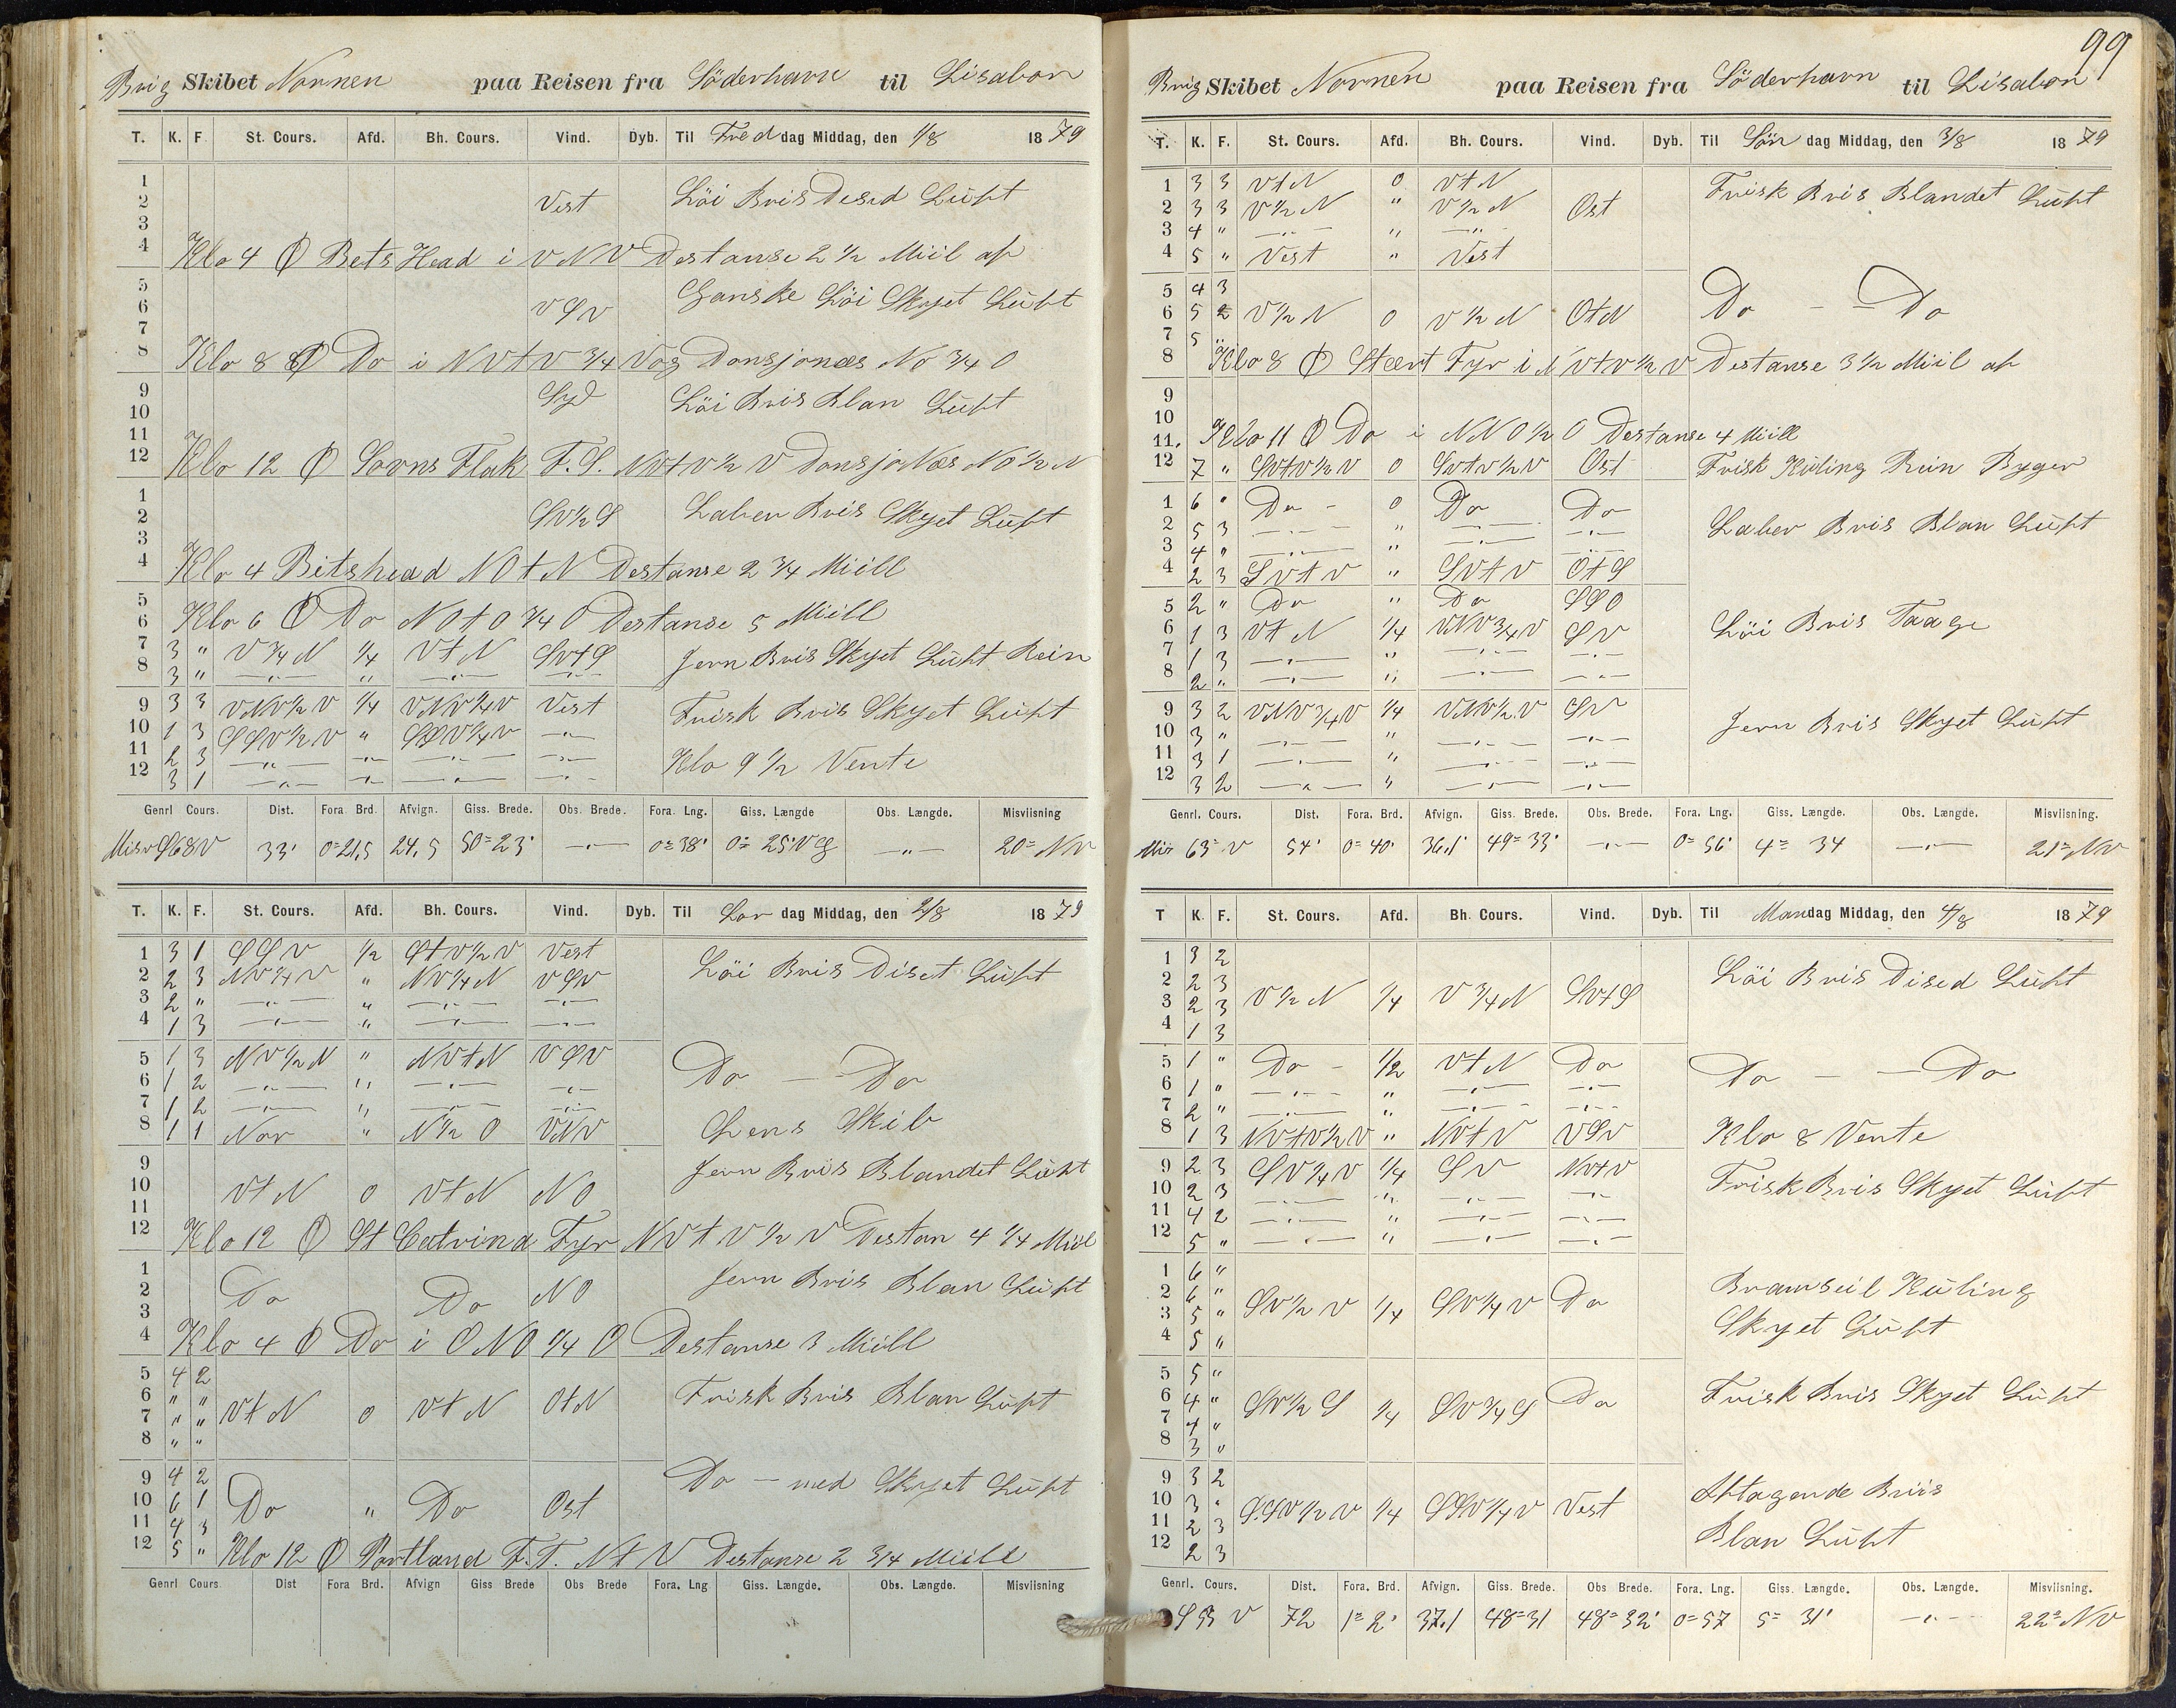 Brig Skibet Nornen paa Reisen fra Söderhavn til Lisabon
T. K. F. St. Cours. Afd. Bh. Cours. Vind. Dyb. Til Fred dag Middag, den 1/8 1879
1
2 Vest Löi Bris Desed Luft
3
4 Klo 4 Ꝋ Bets Head i VNV Destanse 2 1/2 Miil af
5
6 VSV Ganske Löi Skyet Luft
7
8 Klo 8 Ꝋ Do i NVtV 3/4 V og Donsjonæs No 3/4 O
9 Syd Löi Bris Blan Luft
10
11
12 Klo 12 Ꝋ Sovns Flak F.S. NVtV 1/2 V DonsjoNæs NO 1/2 N
1
2 SV 1/2 S Laber Bris Skyet Luft
3
4 Klo 4 Bitshead NOtN Destanse 2 3/4 Miill
5
6 Klo 6 Ꝋ Do NOtO 3/4 O Destanse 5 Miill
7 3 " V 3/4 N 1/4 VtN SVtS Jevn Bris Skyet Luft Rein
8 3 " —"— " —"— —"—
9 3 3 VNV 1/2 V 1/4 VNV 1/4 V Vest Frisk Bris Skyet Luft
10 1 3 SSV 1/2 V " SSV 1/4 V —"—
11 2 3 —"— —"— —"— —"— Klo 9 1/2 Vente
12 3 1 —"— —"— —"— —"—
Genrl Cours. Dist. Fora. Brd. Afvign. Giss. Brede. Obs. Brede. Fora. Lng. Giss. Længde Obs. Længde. Misviisning
Misv S68V 33' 0=21,5 24,5 50=23' —"— 0=38' 0=25'V —"— 20=NV
T. K. F. St. Cours. Afd. Bh. Cours. Vind. Dyb. Til Lor dag Middag, den 2/8 1879
1 3 1 SSV 1/2 StV 1/2 V Vest Löi Bris Diset Luft
2 2 3 NV 1/4 V " NV 1/4 N VSV
3 2 " —"— " —"— —"—
4 1 3 —"— " —"— —"—
5 1 3 NV 1/2 N " NVtN VSV Do — Do
6 1 2 —"— " —"— —"—
7 1 2 —"— " —"— —"—
8 1 1 Nor " N 1/2 O VNV Lens Skib
9 Jevn Bris Blandet Luft
10 VtN 0 VtN NO
11
12 Klo 12 Ꝋ St Catrina Fyr NVtV 1/2 V Destan 4 1/4 Miil
1 Jevn Bris Blan Luft
2 Do Do NO
3
4 Klo 4 Ꝋ Do i ONO 1/4 O Destanse 3 Miill
5 4 2
6 " " VtN 0 VtN OtN Frisk Bris Blan Luft
7 " "
8 " "
9 4 2 Do — med Skyet Luft
10 6 1 Do " Do Ost
11 4 3
12 5 " Klo 12 Ꝋ Portland F.T. NtV Destanse 2 3/4 Miill
Genrl Cours Dist Fora Brd. Afvign Giss Brede Obs Brede Fora. Lng Giss. Længde. Obs. Længde. Misviisning
99
Brig Skibet Nornen paa Reisen fra Söderhavn til Lisabon
T. K. F. St. Cours. Afd. Bh. Cours. Vind. Dyb. Til Sön dag Middag, den 3/8 1879
1 3 3 VtN 0 VtN Frisk Bris Blandet Luft
2 3 3 V 1/2 N " V 1/2 N Ost
3 4 " —"— " —"—
4 5 " Vest " Vest
5 4 3
6 5 2 V 1/2 N 0 V 1/2 N OtN Do — Do
7 5 "
8 Klo 8 Ꝋ Stært Fyr i NVtV 1/2 V Destanse 3 1/2 Miil af
9
10
11. Klo 11 Ꝋ Do i NNO 1/2 O Destanse 4 Miill
12 7 " SVtV 1/2 V 0 SVtV 1/2 V Ost Frisk Kuling Rein Byger
1 6 " Do - 0 Do Do
2 5 3 —"— " —"— —"— Laber Bris Blan Luft
3 4 " —"— " —"— —"—
4 2 3 SVtV " SVtV OtS
5 2 " Do " Do SSO
6 1 3 VtN 1/4 VNV 3/4 V SV Löi Bris Taage
7 1 3 —"— " —"— —"—
8 2 " —"— " —"— —"—
9 3 2 VNV 3/4 V 1/4 VNV 1/2 V SV Jevn Bris Skyet Luft
10 3 " —"— " —"— —"—
11 3 1 —"— " —"— —"—
12 3 2 —"— " —"— —"—
Genrl. Cours. Dist. Fora. Brd. Afvign. Giss. Brede. Obs. Brede. Fora. Lng. Giss. Længde. Obs. Længde. Misviisning.
Mis 63=V 54' 0=40' 36,1' 49=33' —"— 0=56' 4=34 —"— 21=NV
T K. F. St. Cours. Afd. Bh. Cours. Vind. Dyb. Til Mandag Middag, den 4/8 1879
1 3 2
2 2 3 Löi Bris Dised Luft
3 2 3 V 1/2 N 1/4 V 3/4 N SVtS
4 1 3
5 1 " Do - 1/2 VtN Do Do — — Do
6 1 " —"— " —"— —"—
7 2 " —"— " —"— —"—
8 1 3 NVtV 1/2 V " NVtV VSV Klo 8 Vente
9 2 3 SV 1/4 V 1/4 SV NVtV Frisk Bris Skyet Luft
10 2 3 —"— " —"— —"—
11 4 2 —"— " —"— —"—
12 5 " —"— " —"— —"—
1 6 " Bramseil Kuling
2 6 " SV 1/2 V 1/4 SV 1/4 V Do
3 5 " Skyet Luft
4 5 "
5 5 "
6 4 " SV 1/2 S 1/4 SV 3/4 S Do Frisk Bris Skyet Luft
7 4 "
8 3 "
9 3 2 Aftagende Briis
10 3 " SSV 1/2 V 1/4 SSV 1/4 V Vest
11 2 3 Blan Luft
12 2 3
Genrl. Cours. Dist. Fora. Brd. Afvign. Giss. Brede. Obs Brede. Fora. Lng. Giss. Længde. Obs. Længde. Misviisning.
S 53 V 72 1=2' 37,1 48=31 48=32' 0=57 5=31' —"— 22=NV